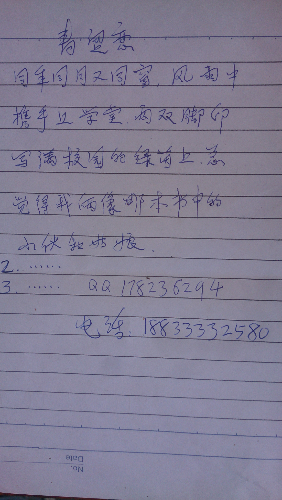 青恋
同年同月又同窗,风雨中
携手上学堂,两双脚印
写满校园的绿上.总
觉得我俩像那本书中的
小伙和姑娘.
2. ······
3. ······ QQ 178236294
电话: 18833332580
No.
Date